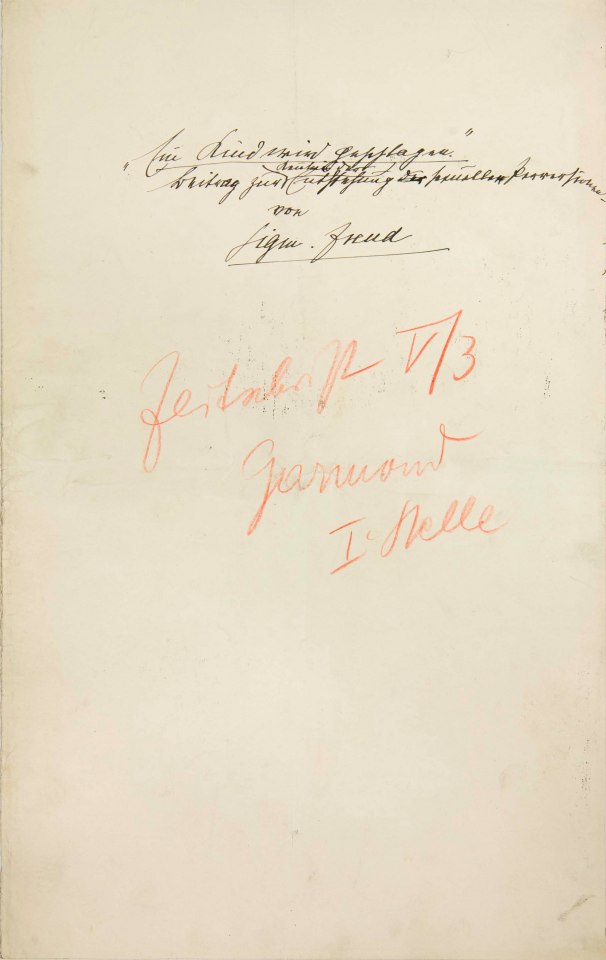 „Ein Kind wird geschlagen."
Kenntnis der
Beitrag zur Entstehung der sexueller Perversionen.
von
Sigm. Freud
Zeitschrift V/3
Garmond
I. Stelle